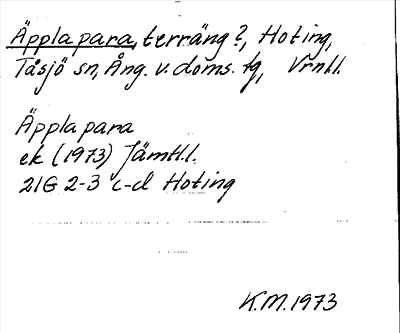 Äpplapara, terräng?, Hoting,
Tåsjö sn, Ång. v. doms. tg, Vrnl.
Äpplapara
ek (1973) Jämtl.l.
21G 2-3 c-d Hoting
K.M. 1973